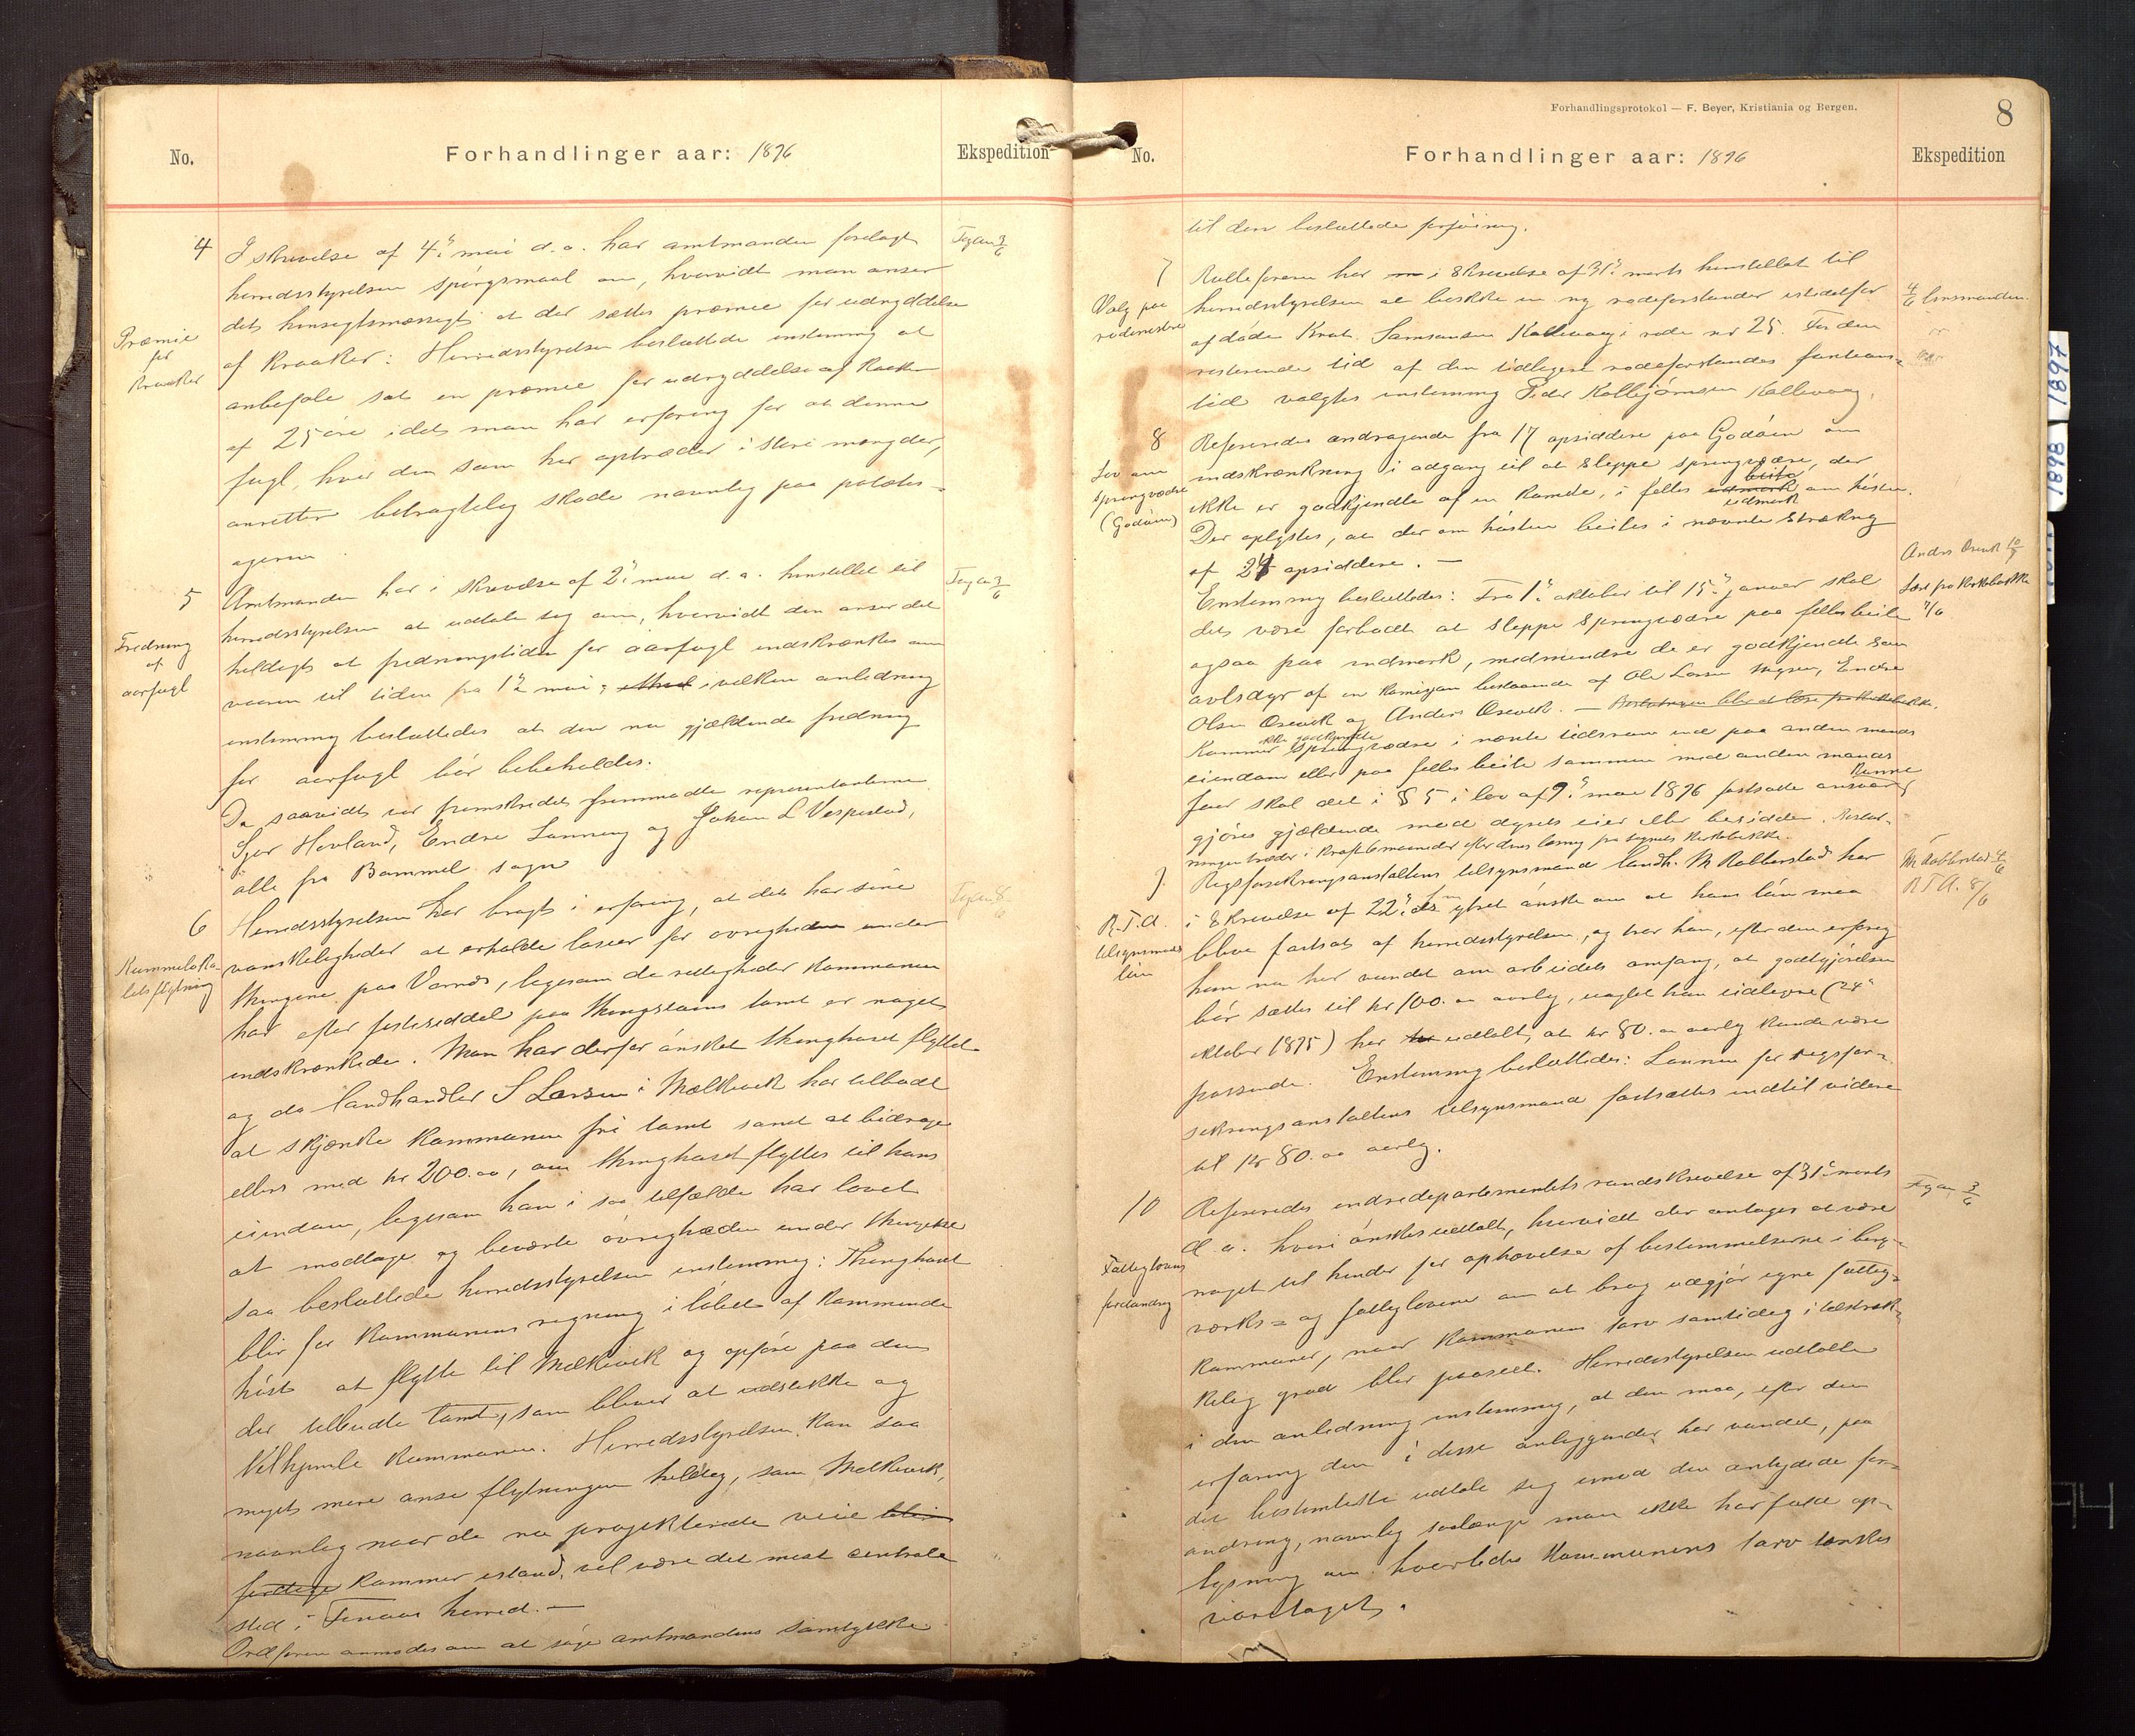 No.
Forhandlinger aar: 1896
Ekspedition
4
I skrivelse af 4de mai d.a. har amtmanden forelagt
herredsstyrelsen spörgsmaal om, hvorvidt man anser
det hensigtsmæssigt at der sættes præmie for udryddelse
af kraaker: Herredsstyrelsen besluttede enstemmig at
anbefale sat en præmie for udryddelse af
af 25 öre idet man har erfaring for at denne
fugl, hvor den som her optræder i store mængder,
anretter betragtelig skade navnlig paa potetes-
agerne
Præmie
for
kraaker
Tegan 3/6
5
Amtmanden har i skrivelse af 2den mai d.a. henstillet til
herredsstyrelsen at udtale sig om, hvorvidt den anser det
heldigt at fredningstiden for aarfugl indskrænkes om
vaaren til tiden fra 1ste mai; i hvilken anledning
enstemmig besluttedes at den nu gjældende fredning
for aarfugl bör bibeholdes.
Fredning
af
aarfugl
Tegan 3/6
Da saavidt var fremskredet fremmödte repræsentanterne
Sjur Hovland, Endre Lunning og Johan L Vespestad,
alle fra Bømmel sogn
6
Herredsstyrelsen har bragt i erfaring, at det har sine
vanskeligheder at erholde losier for övrigheden under
thingene paa Varnes, ligesom de rettigheder kommunen
har efter festeseddel paa thingstuens tomt er noget
indskrænkede. Man har derfor önsket thinghuset flyttet
og da landhandler S Larsen i Mælkevik har tilbudt
at skjænke kommunen fri tomt samt at bidrage
ellers med kr 200.00, om thinghuset flyttes til hans
eiendom, ligesom han i saa tilfælde har lovet
at modtage og beværte övrigheden under thingene
saa besluttede herredsstyrelsen enstemmig: Thinghuset
blir for kommunens regning i löbet af kommende
höst at flytte til Mælkevik og opföre paa den
der tilbudte tomt, som bliver at udstikke og
tilhjemle kommunen. Herredsstyrelsen kan saa
meget mere anse flytningen heldig, som Mælkevik,
navnlig naar de nu projekterede veie blir
færdige kommer istand, vil være det mest centrale
sted i Finaas herred. —
Ordförer anmodes om at söge amtmandens samtykke
Kummelokalets flytning
Tegan 8/6
Forhandlingsprotokol — F. Beyer, Kristiania og Bergen.
8
No.
Forhandlinger aar: 1896
Ekspedition
til den besluttede forföining.
7
Valg paa
rodemester
Rulleföreren har i skrivelse af 31te marts henstillet til
herredsstyrelsen at beskikke en ny rodeforstander istedetfor
afdöde Knut Samsonsen Kallevaag i rode nr 25. For den
resterende tid af den tidligere rodeforstanders funktions-
tid valgtes enstemmig Peder Kolbjörnsen Kallevaag.
4/6 lensmanden
8
Lov om
Springvædre
(Godöen)
Refereredes andragende fra 17 opsiddere paa Godöen om
indskrænkning i adgang til at sleppe springvædre, der
ikke er godkjendte af en komite, i felles udmark beite om hösten.
udmark
Der oplystes, at der om hösten beites i nævnte strækning
af 24 opsiddere. —
Enstemmig besluttedes: Fra 1ste oktober til 15de januar skal
det være forbudt at sleppe springvædre paa fellesbeite
ogsaa paa indmark, medmindre de er godkjendte som
avlsdyr af en komission bestaaende af Ole Larsen, Endre
Olsen Örevik og Anders Örevik. —
Kommer ikke godkjendte springvædre i nævnte tidsrum ind paa anden mands
eiendom eller paa felles beite sammen med anden mands
faar skal det i § 5 i lov af 9de mai 1896 fastsatte ansvar kunne
gjöres gjældende mod dyrets eier eller besidder. Beslut-
ningen træder i kraft 6 maaneder efter dens læsning fra sognets kirkebakke.
Anders Örevik 10/7
Læst fra kirkebakke
7/6
9.
R.T.A.
tilsynsmands
lön
Rigsforsikringsanstaltens tilsynsmand landh. M Robberstad har
i skrivelse af 22de ds ytret önske om at hans lön maa
blive fastsat af herredsstyrelsen, og tror han, efter den erfaring
han nu har vundet om arbeidets omfang, at godtgjörelsen
bör sættes til kr 100.00 aarlig, uagtet han tidligere (24de
oktober 1895) har udtalt, at kr 80.00 aarlig kunde være
passende. Enstemmig besluttedes: Lönnen for rigsfor-
sikringsanstaltens tilsynsmand fastsættes indtil videre
til kr 80.00 aarlig.
M Robberstad 4/6
R T A. 8/6
10
Fattiglovens
forandring
Refereredes indredepartementets rundskrivelse af 31te marts
d.a. hvori önskes udtalt, hvorvidt der antages at være
noget til hinder for ophævelse af bestemmelserne i berg-
verks- og fattiglovene om at brug udgjör egne fattig-
kommuner, naar kommunens tarv samtidig i tilstræk-
kelig grad blir paaseet. Herredsstyrelsen udtalte
i den anledning enstemmig, at den maa, efter den
erfaring den i disse anliggender har vundet, paa
det bestemteste udtale sig imod den antydede for-
andring, navnlig saalænge man ikke har faaet op-
lysning om hvorledes kommunens tarv tænkes
varetaget.
Tegan 3/6
1897
1898